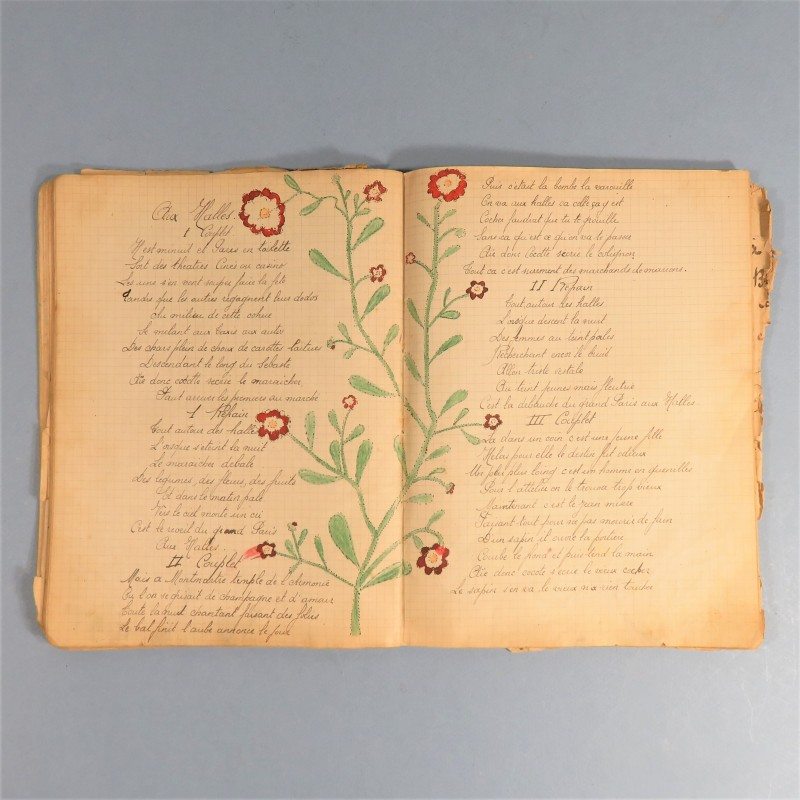 Aux Halles.
1 Couplet
Il est minuit et Paris en toilette
Sort des theatres Cines ou casino
Les uns s'en vont souper faire la fete
Tandis que les autres regagnent leur dodos
Au milieu de cette cohue
Se melant aux taxis aux autos
Des chars plein de choux de carottes tortues
Descendant le long du Sebasto
Hue donc cocotte secrie le maraicher
Faut arriver les premiers au marche
1 Refrain
Tout autour des halles
Lorsque s'eteint la nuit
Le maraicher debale
Des legumes, des fleurs, des fruits
Et dans le matin pale
Vers le ciel monte un cri
C'est le reveil du grand Paris
Aux Halles.
II Couplet
Mais a Montmartre temple de l'
Ou l'on se grisait de champagne et d'amour
Toute la nuit chantant faisant des folies
Le bal finit l'aube annonce le jour
Puis s'etait la bombe la
On va aux halles ca colle ça y est
Cocher faudrait que tu te grouille
Sans ca qu'est ce qu'on va te passer
Hue donc cocotte secrie le colignon
Tout ca c'est surement des marchands de marrons.
II Refrain
Tout autour des halles
Lorsque descend la nuit
Des femmes au teint pales
cherchant encor le fruit
Allon triste
Au teint jeunes mais
C'est la débauche du grand Paris aux Halles
III Couplet
La dans un coin c'est une jeune fille
Helas pour elle le destin fut odieux
Un peu plus loing c'est un homme en guenilles
Dans l'atelier on le trouva trop vieux
Maintenant c'est le jean misere
Faisant tout pour ne pas mourir de faim
D'un sapin il ouvre la portiere
Courbe le front et puis tend la main
Hue donc cocote s'ecrie le vieux cocher
Le sapin s'en va le vieux n'a rien toucher